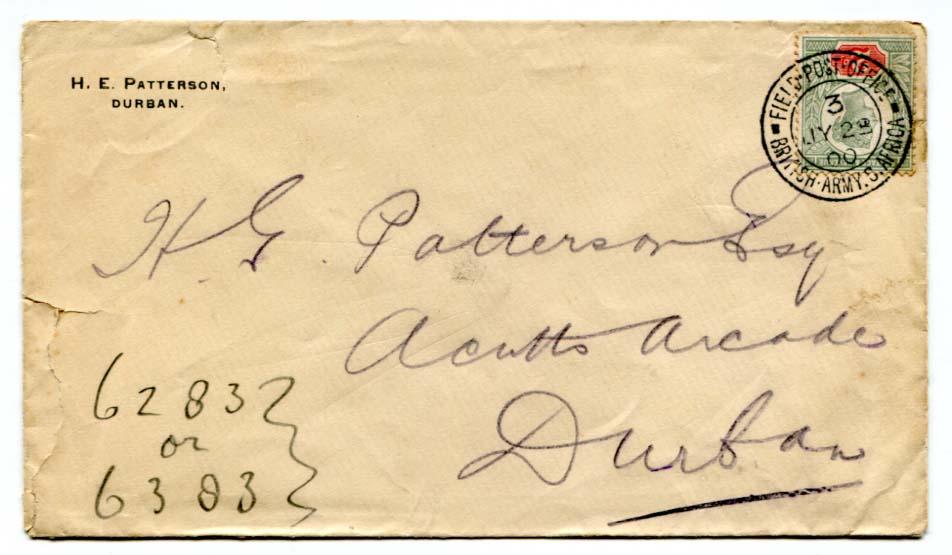 H. E. PATTERSON,
DURBAN.
FIELD·POST·OFFICE
3
JY 2
00
BRITISH·ARMY.S.AFRICA
H. G. Patterson Esq
Acutts Arcade
Durban
6283
or
6383